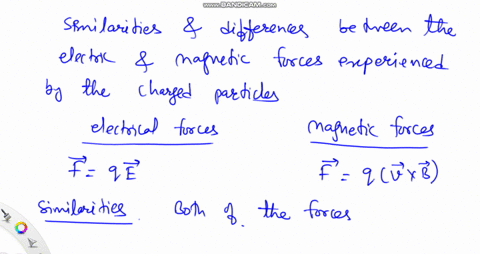 WWW.BANDICAM.COM
Similarities & differences between the
electric & magnetic forces experienced
by the charged particles
electrical forces magnetic forces
F⃗ = qE⃗ F⃗ = q(v⃗ x B⃗)
Similarities. Both of the forces